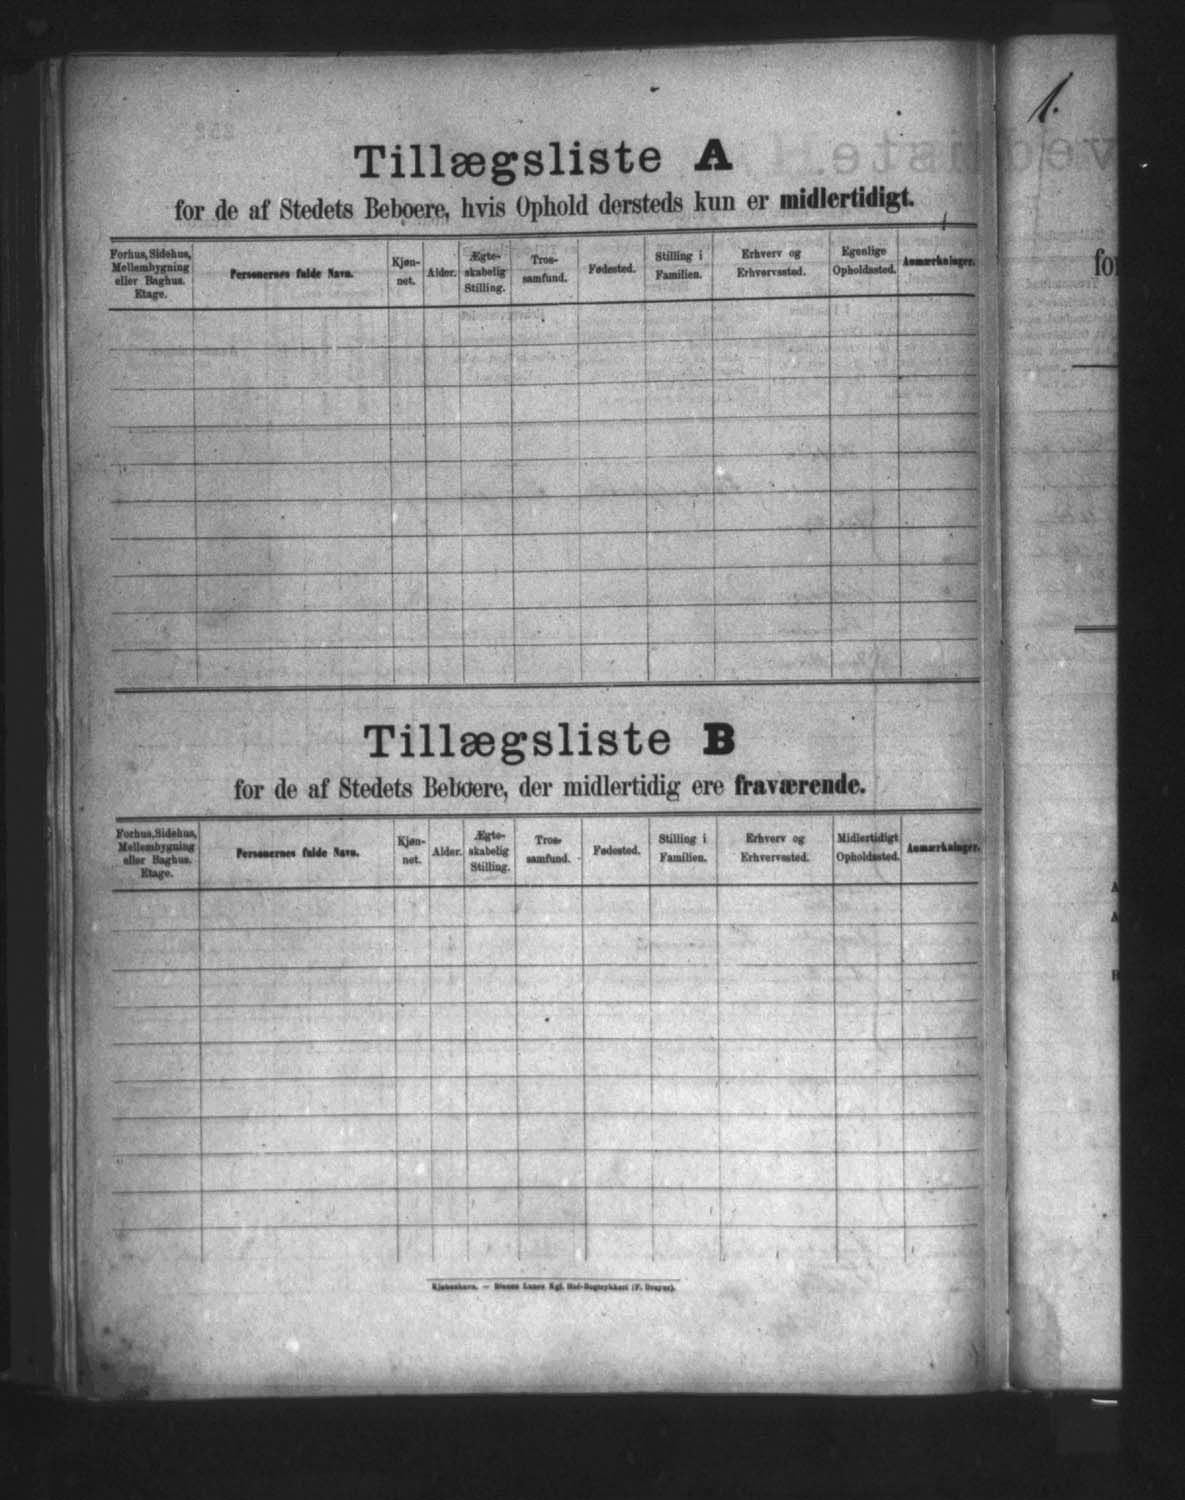 Tillægsliste A
for de af Stedets Beboere, hvis Ophold dersteds kun er midlertidigt.
Forhus, Sidehus, Mellembygning eller Baghus. Etage.
Personernes fulde Navn.
Kjøn-net.
Alder.
Ægte-skabelig Stilling.
Tros-samfund.
Fødested.
Stilling i Familien.
Erhverv og Erhvervssted.
Egenlige Opholdssted.
Anmærkninger.
Tillægsliste B
for de af Stedets Beboere, der midlertidig ere fraværende.
Forhus, Sidehus, Mellembygning eller Baghus. Etage.
Personernes fulde Navn.
Kjøn-net.
Alder.
Ægte-skabelig Stilling.
Tros-samfund.
Fødested.
Stilling i Familien.
Erhverv og Erhvervssted.
Midlertidigt Opholdssted.
Anmærkninger.
Kjøbenhavn. — Bianco Lunos Kgl. Hof-Bogtrykkeri (F. Dreyer).
1.